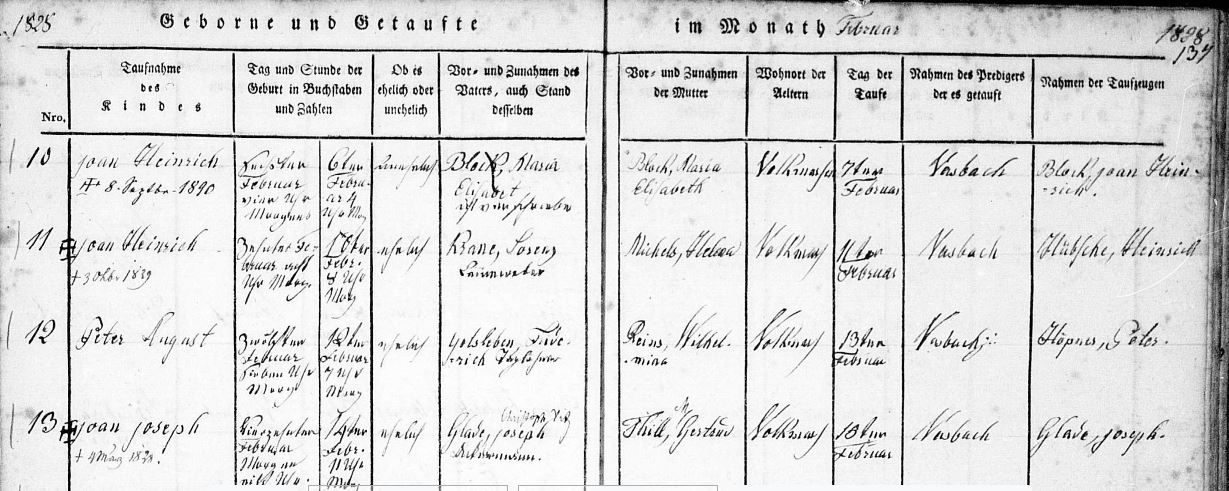 1828 Geborne und Getaufte im Monath Februar 1828
137
Nro.
Taufnahme
des
Kindes
Tag und Stunde der
Geburt in Buchstaben
und Zahlen
Ob es
ehelich oder
unehelich
Vor- und Zunahmen des
Vaters, auch Stand
desselben
Vor- und Zunahmen
der Mutter
Wohnort der
Aeltern
Tag der
Taufe
Nahmen des Predigers
der es getauft
Nahmen der Taufzeugen
10
joan Heinrich
8. Septbr. 1890
Sechster
Februar
vier Uhr
Morgens
6ter
Febru-
ar 4
Uhr Mor
unehelich
Block, Maria
Elisabet
Block, Maria
Elisabeth
Volkmarsen
7ter
Februar
Vasbach
Block, joan Hein-
-rich.
11
joan Heinrich
† 3 Oktbr. 1839
Zehnter Fe-
bruar acht
Uhr Morg.
10ter
Febr.
8 Uhr
Morg
ehelich
Krane, Lorenz
Leinweber
Michels, Helena
Volkmars
11ter
Februar
Vasbach
Heinrich
12
Peter August
Zwölfter
Februar
sieben Uhr
Morg
12ter
Februar
7 Uhr
Morg
ehelich
Friede-
-rich Taglöhner
Wilhel-
-mina
Volkmars
13ter
Februar
Vasbach
Höpner, Peter.
13
joan joseph
† 4 März 1832.
Vierzehnter
Februar
Morgen
eilf Uhr.
14ter
Febr.
11 Uhr
Mo
ehelich
Christoph
Glade, joseph
Ackermann.
Thill, Gertrud
Volkmars
18ter
Februar
Vasbach
Glade, joseph.